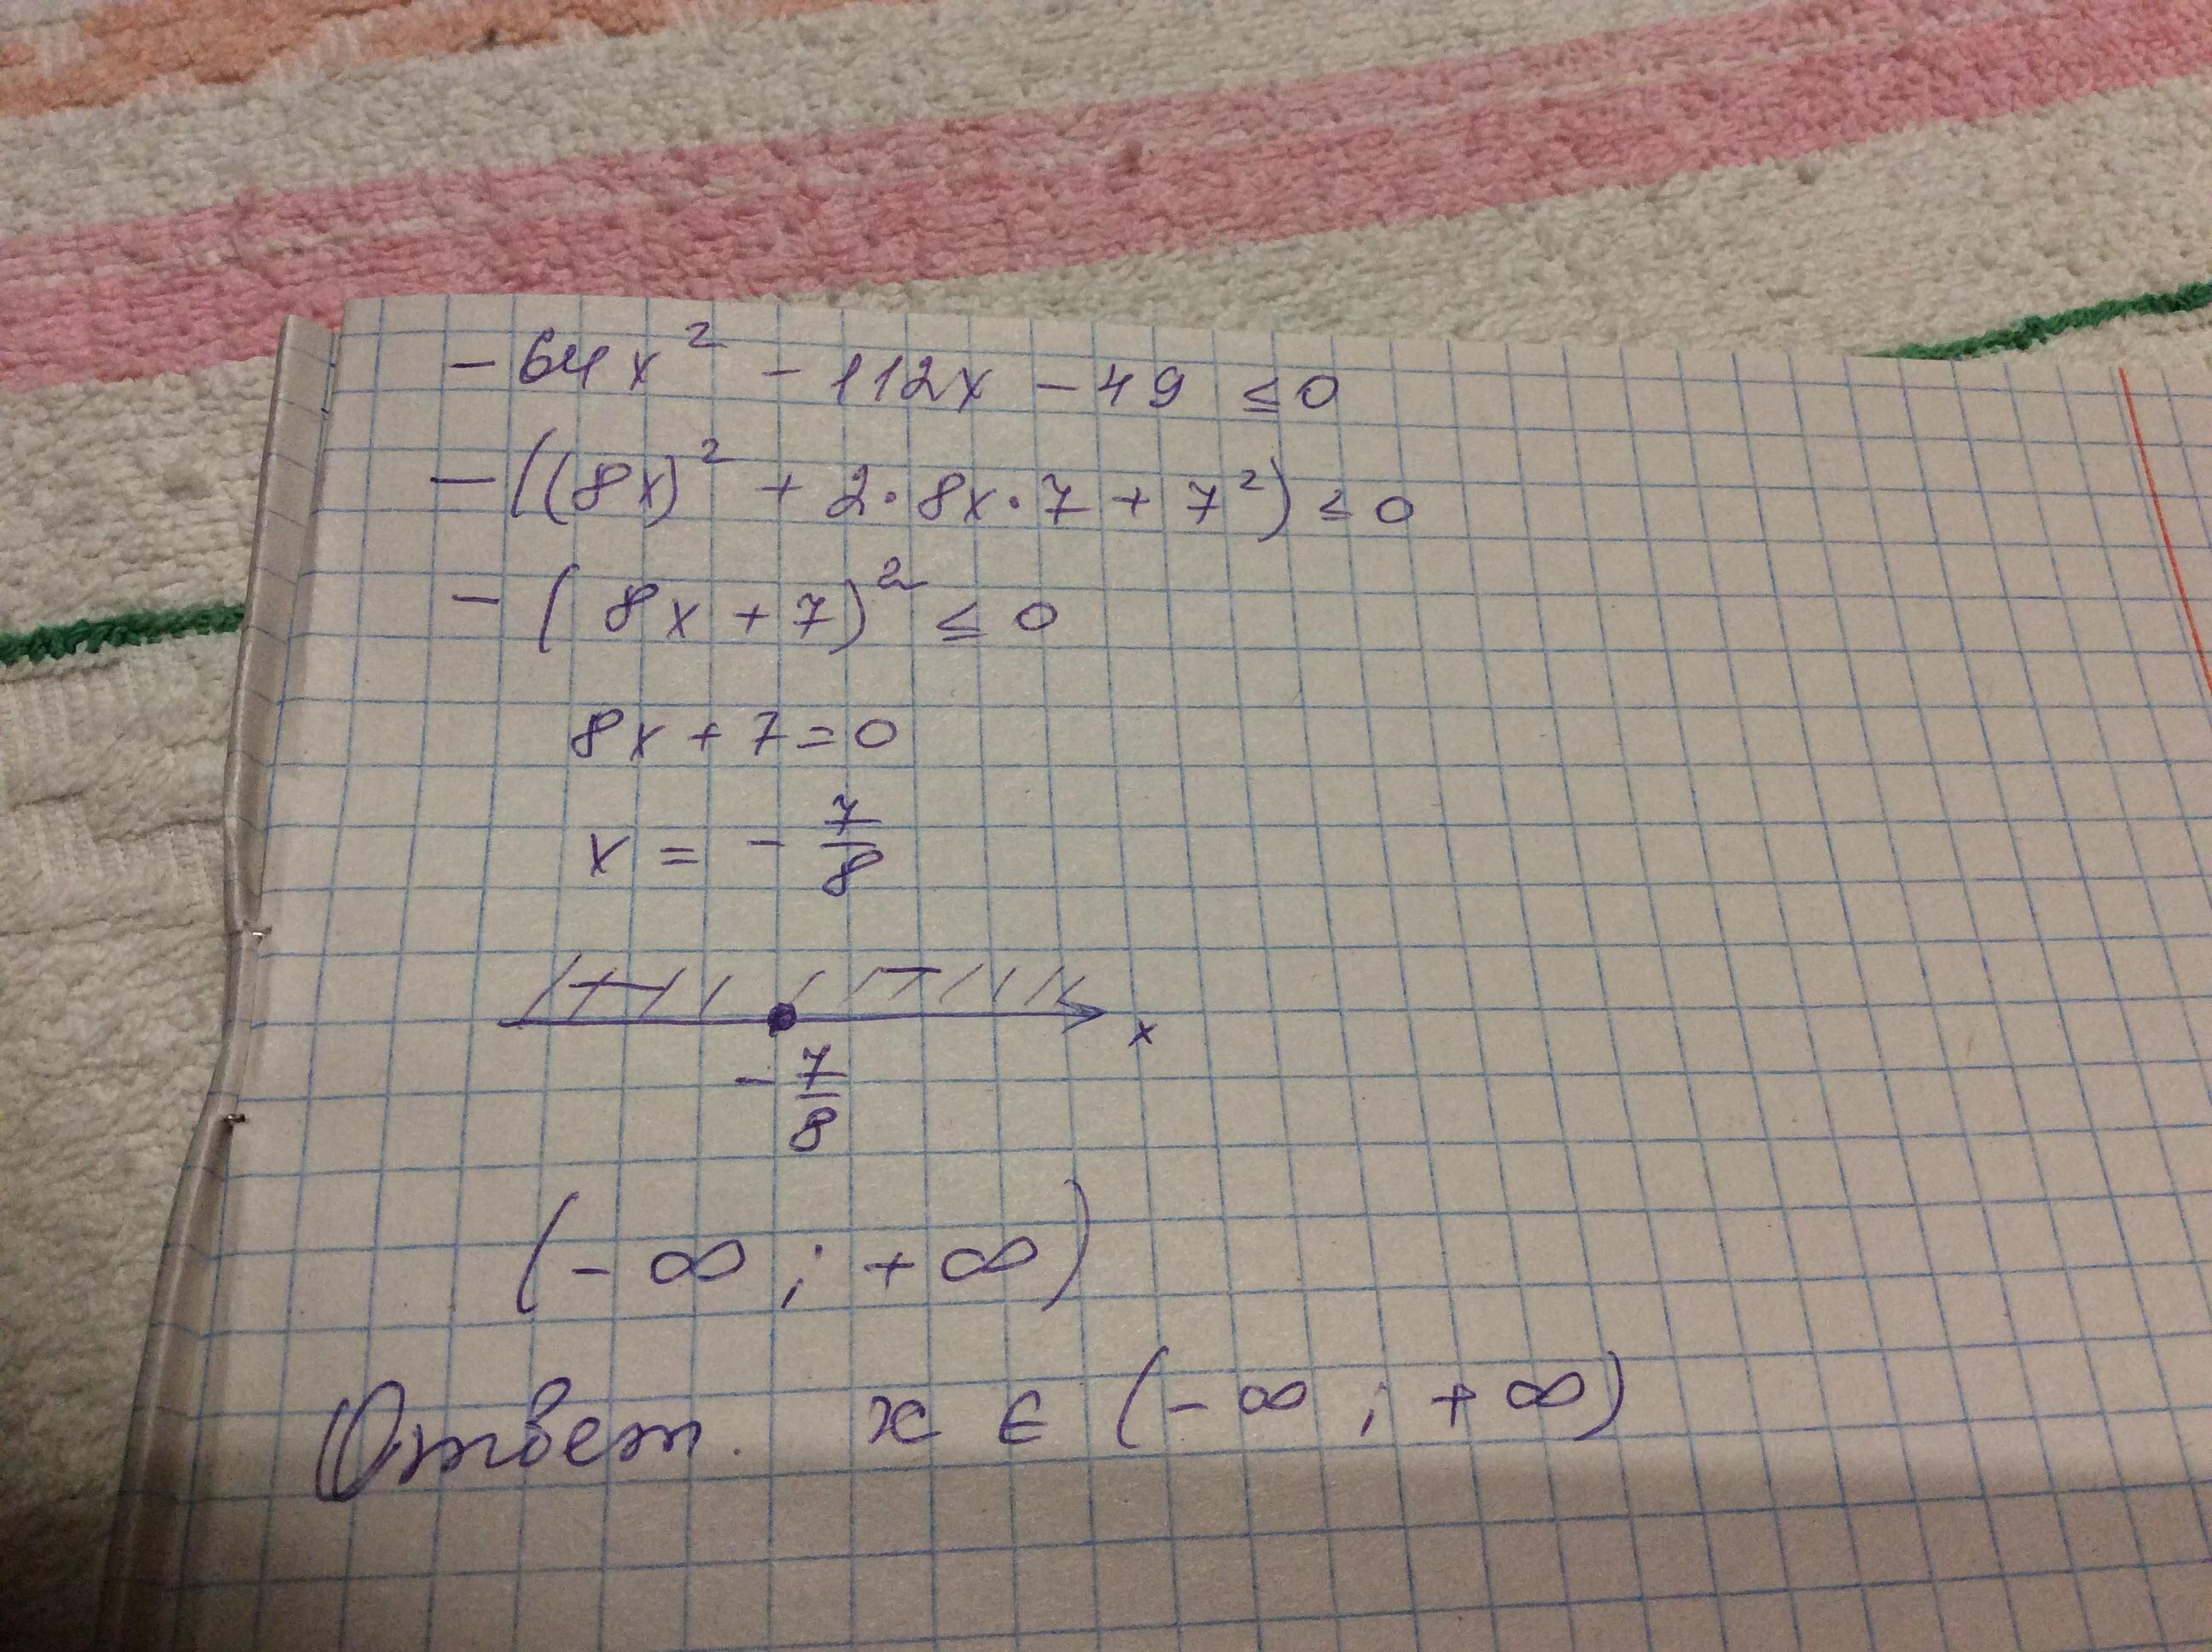 - 64x² - 112x - 49 ≤ 0
- ((8x)² + 2·8x·7 + 7²) ≤ 0
- (8x + 7)² ≤ 0
8x + 7 = 0
x = - 7/8
x
- 7/8
(- ∞ ; + ∞)
Ответ. x ∈ (- ∞ ; + ∞)